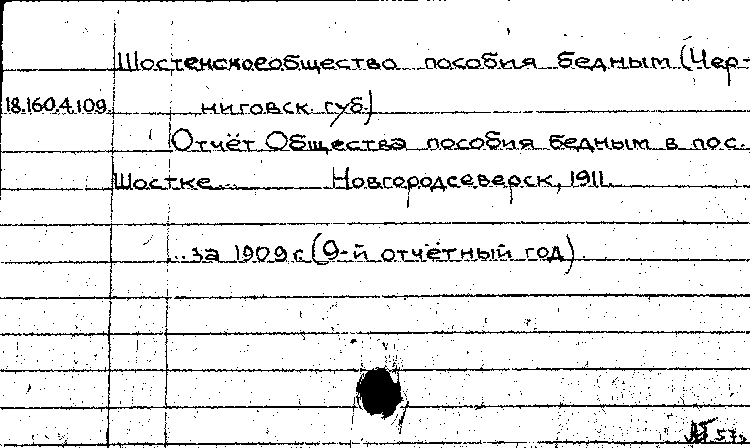 Шостенское общество пособия бедным (Чер-
18.160.4.109. ниговск. губ.)
Отчёт Общества пособия бедным в пос.
Шостке... Новгородсеверск, 1911.
...за 1909 г. (9-й отчётный год).